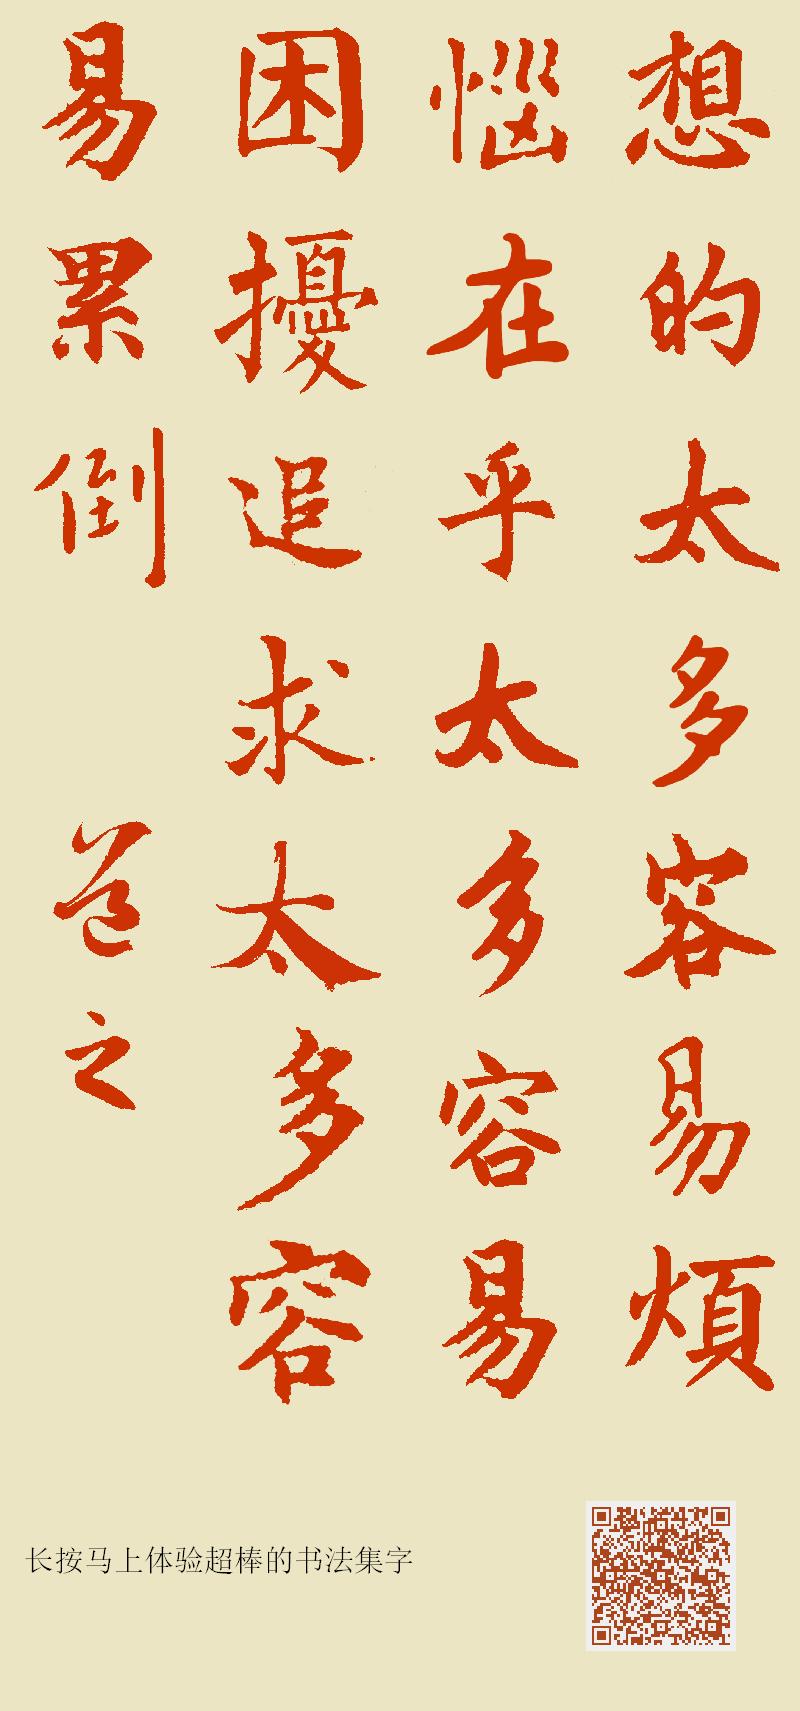 想的太多容易煩
惱在乎太多容易
困擾追求太多容
易累倒
道之
长按马上体验超棒的书法集字